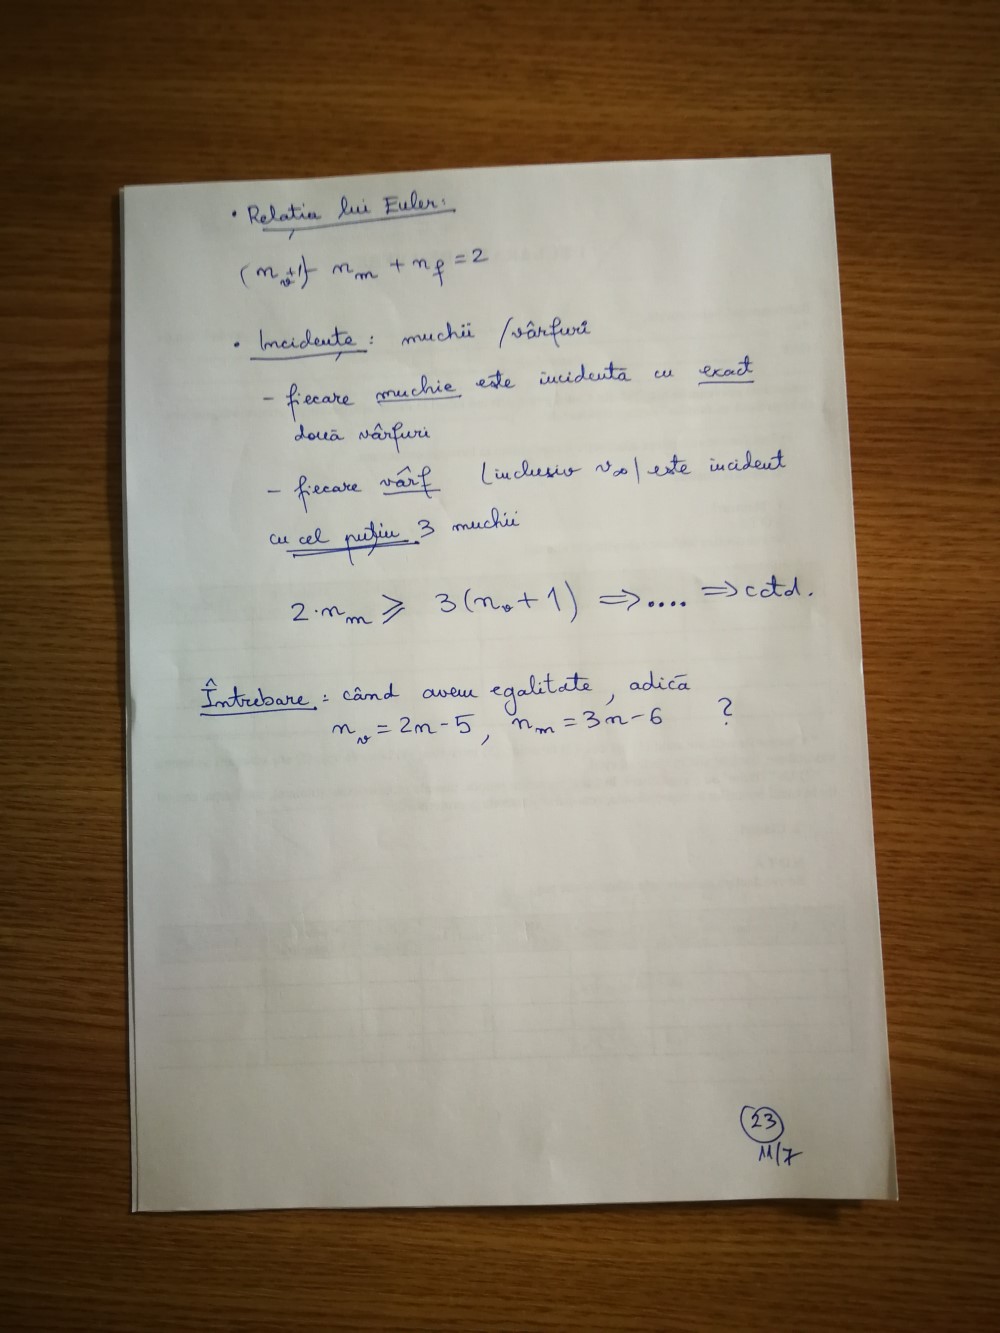 • Relația lui Euler:
(n_v+1) - n_m + n_f = 2
• Incidențe: muchii / vârfuri
- fiecare muchie este incidentă cu exact
două vârfuri
- fiecare vârf (inclusiv v∞) este incident
cu cel puțin 3 muchii
2·n_m ⩾ 3(n_v+1) ⇒ .... ⇒ cctd.
Întrebare: când avem egalitate, adică
n_v = 2n-5, n_m = 3n-6 ?
23
11/7